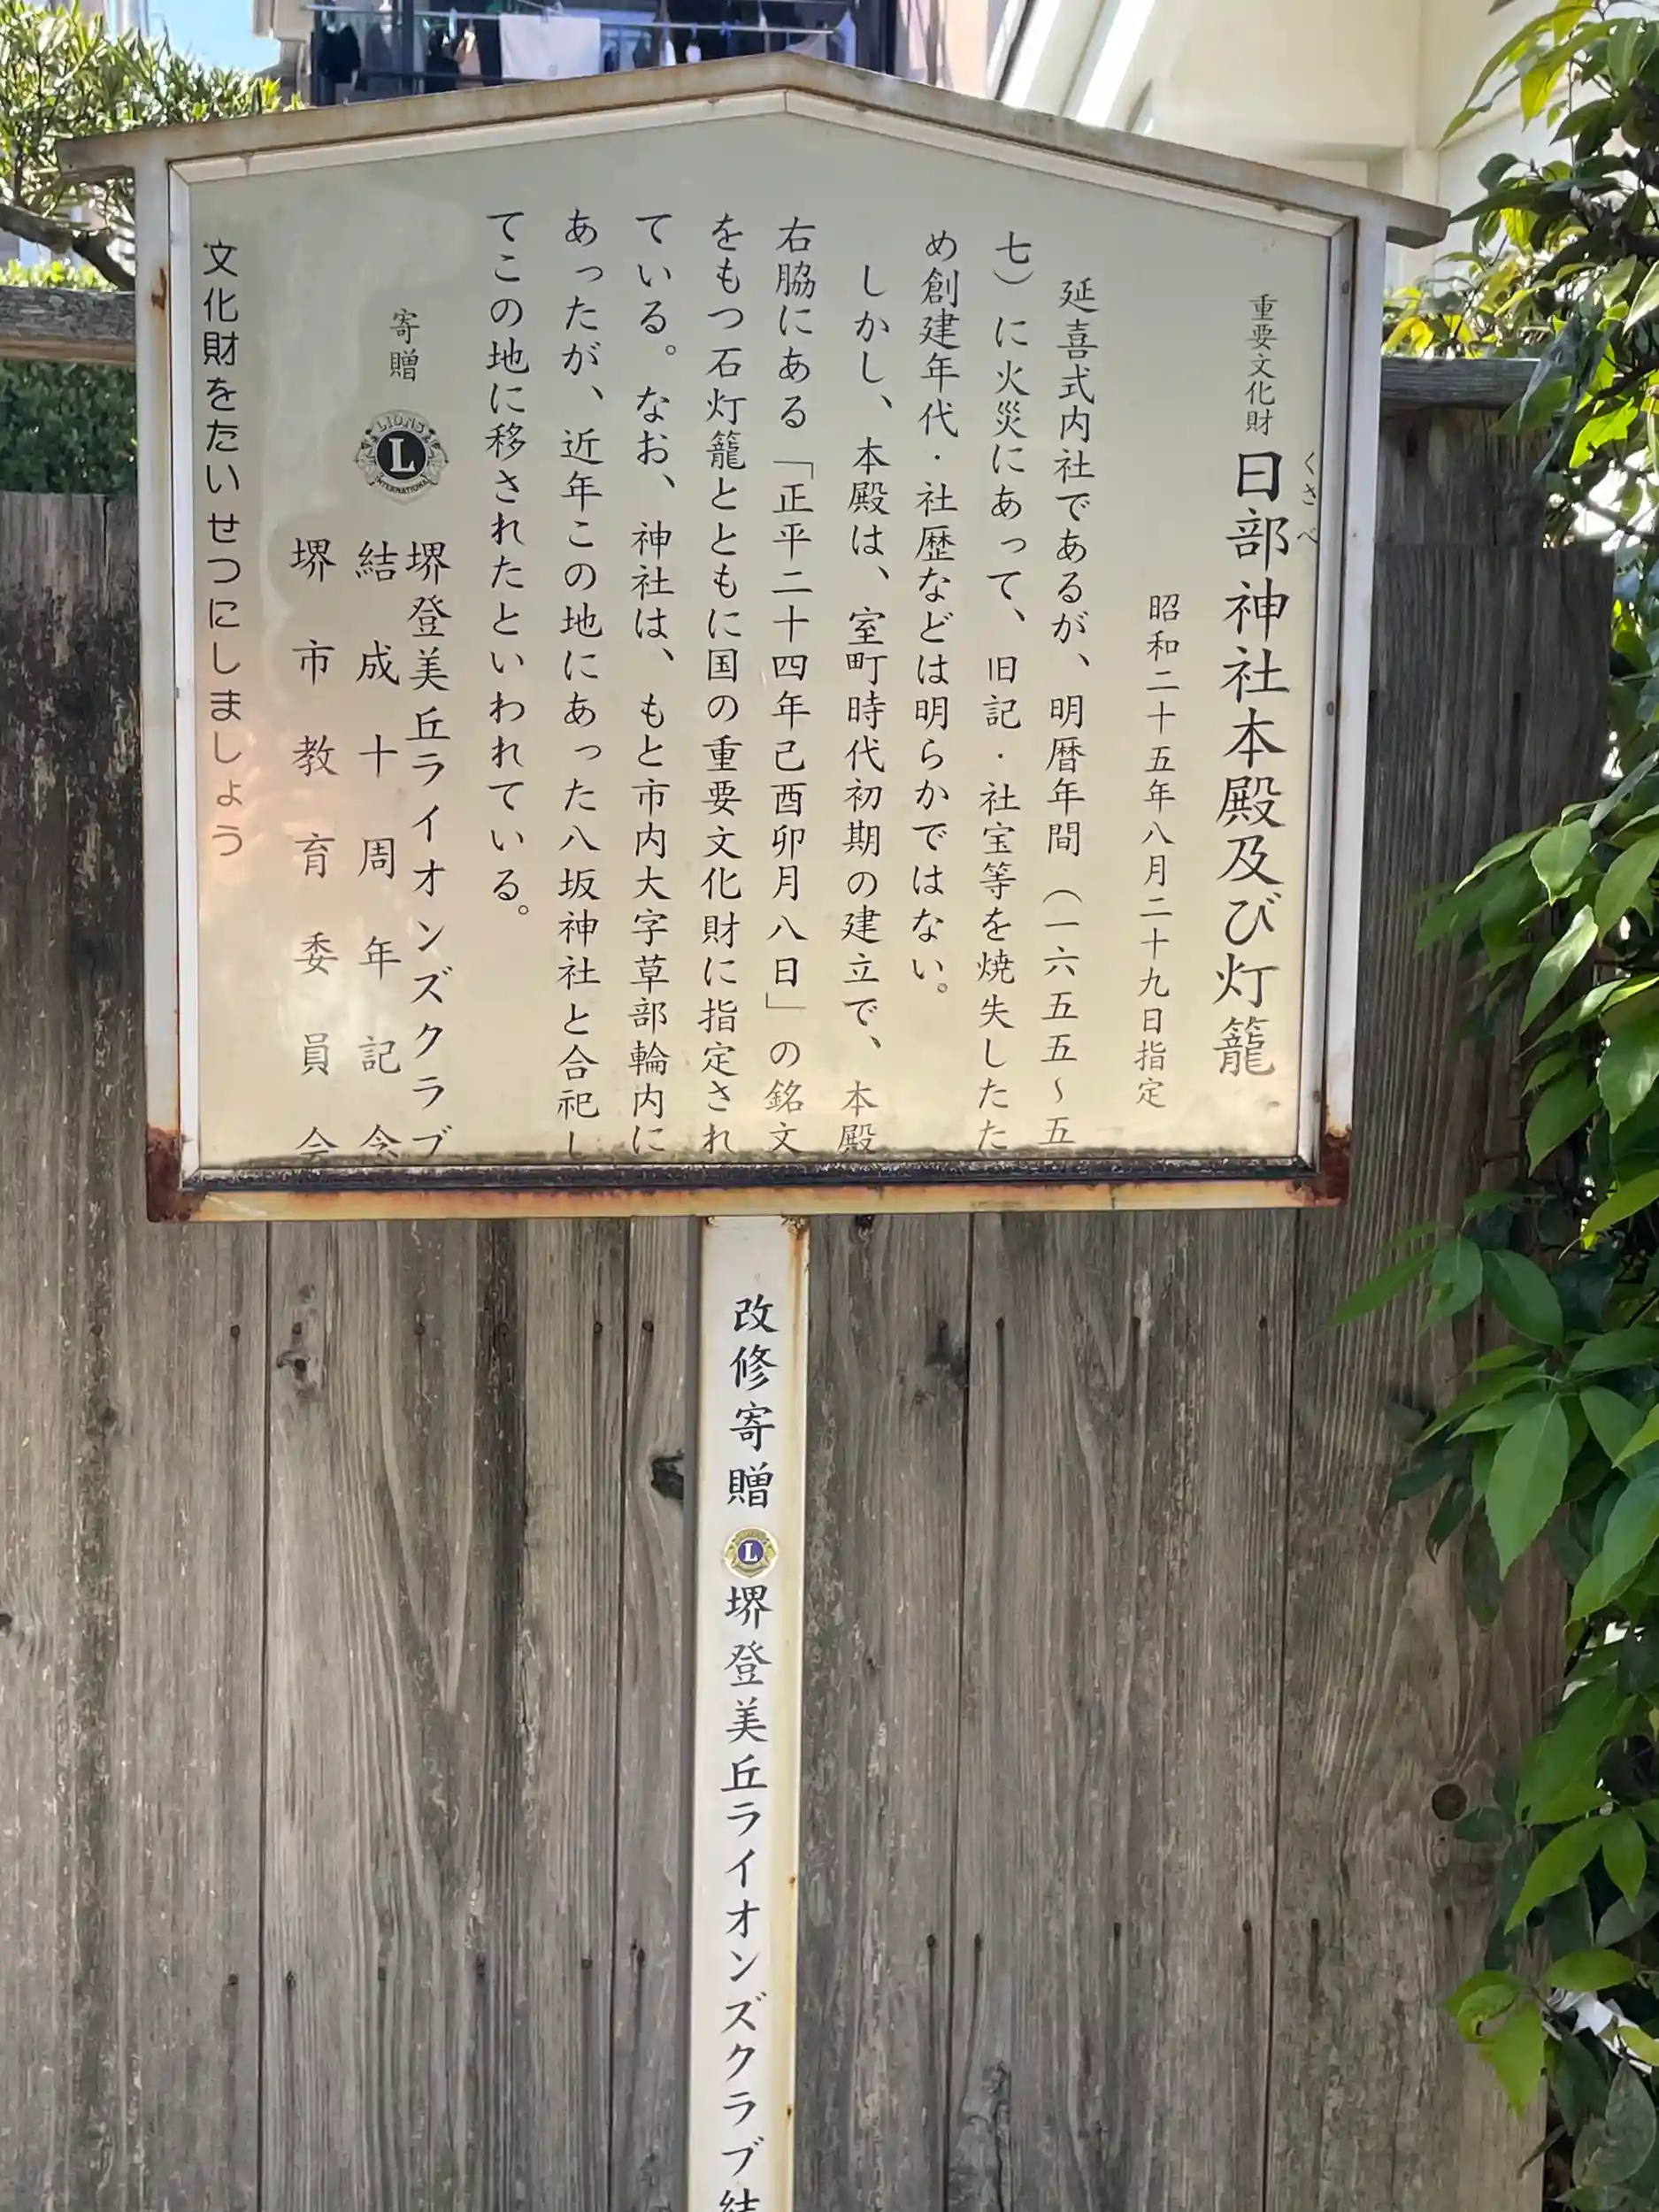 重要文化財 日部神社本殿及び灯籠
くさべ
昭和二十五年八月二十九日指定
延喜式内社であるが、明暦年間（一六五五～五
七）に火災にあって、旧記・社宝等を焼失したた
め創建年代・社歴などは明らかではない。
しかし、本殿は、室町時代初期の建立で、本殿
右脇にある「正平二十四年己酉卯月八日」の銘文
をもつ石灯籠とともに国の重要文化財に指定され
ている。なお、神社は、もと市内大字草部輪内に
あったが、近年この地にあった八坂神社と合祀し
てこの地に移されたといわれている。
寄贈
LIONS
L
INTERNATIONAL
堺登美丘ライオンズクラブ
結成十周年記念
堺市教育委員会
文化財をたいせつにしましょう
改修寄贈
L
堺登美丘ライオンズクラブ結